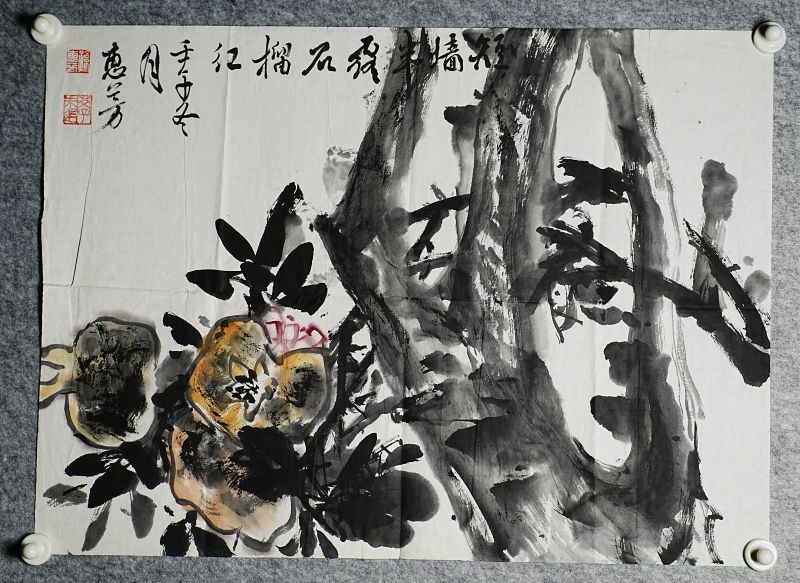 短墙半露石榴红
壬午冬
月
惠芳